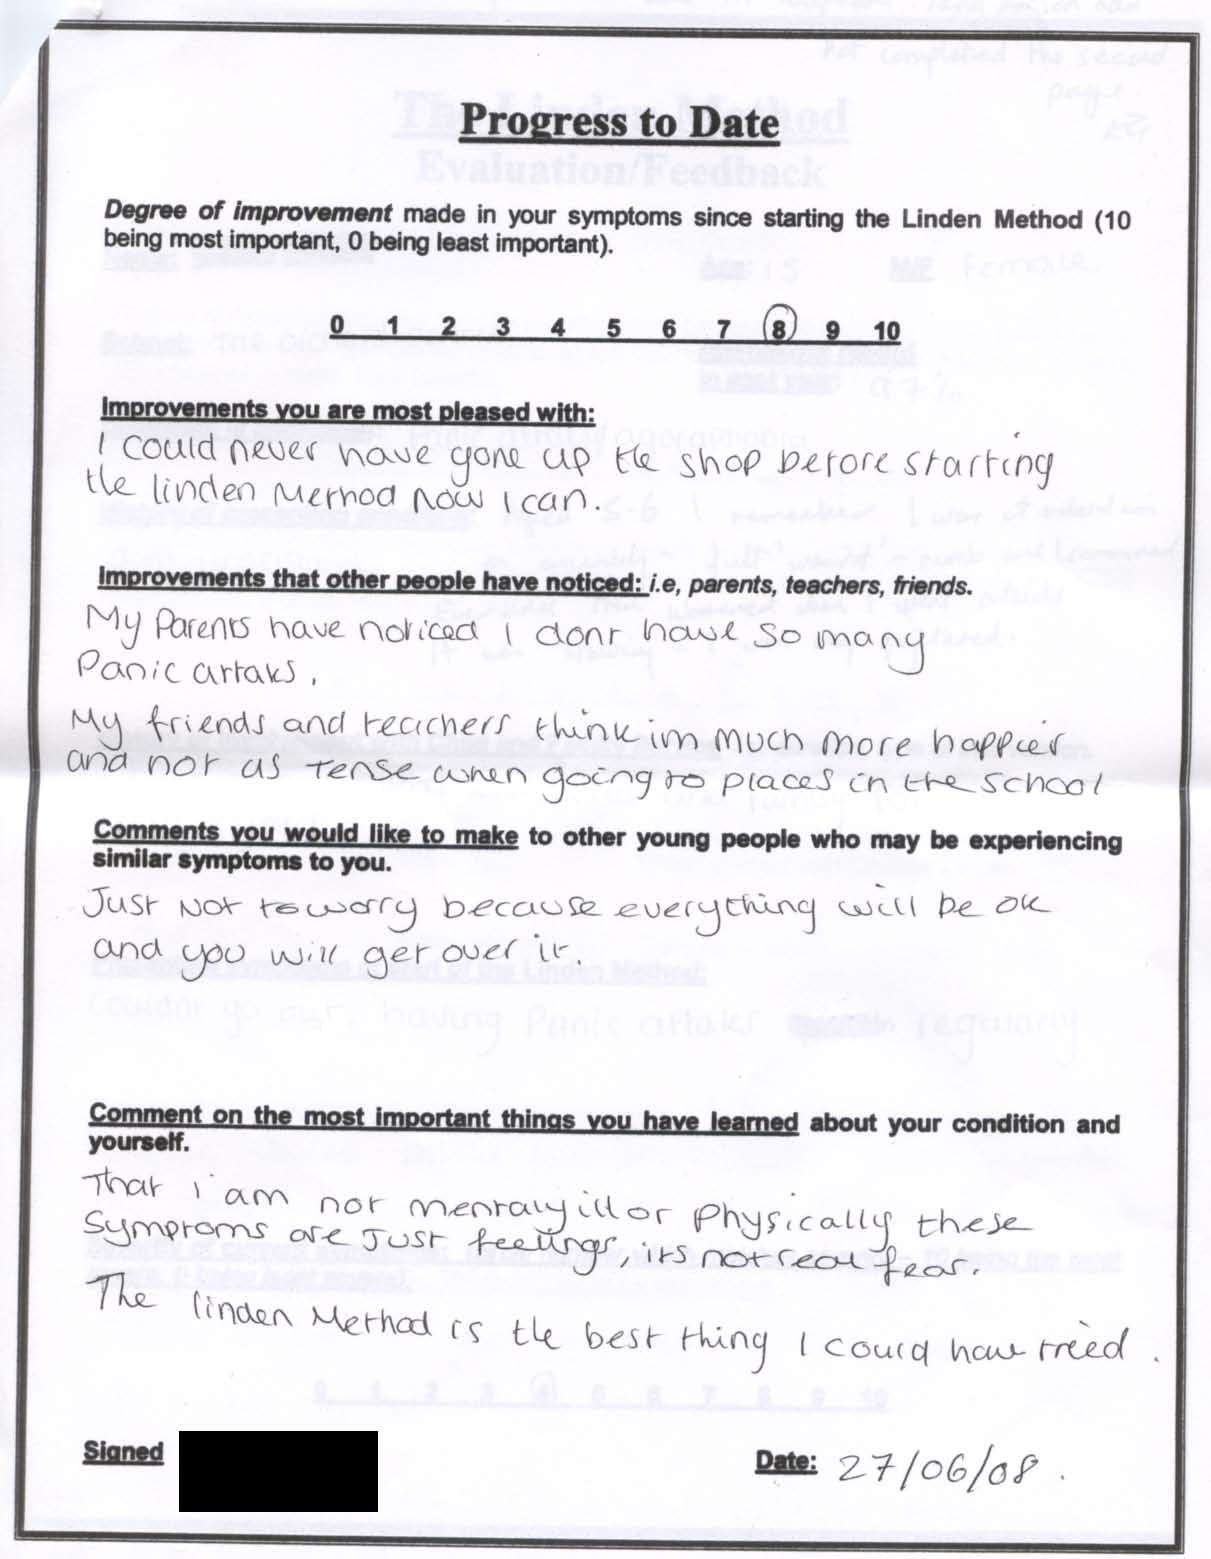 Progress to Date
Degree of improvement made in your symptoms since starting the Linden Method (10
being most important, 0 being least important).
0 1 2 3 4 5 6 7 8 9 10
Improvements you are most pleased with:
I could never have gone up the shop before starting
the linden Method now I can.
Improvements that other people have noticed: i.e, parents, teachers, friends.
My Parents have noticed I dont have so many
Panic attaks.
My friends and teachers think im much more happier
and not as tense when going to places in the school
Comments you would like to make to other young people who may be experiencing
similar symptoms to you.
Just Not to worry because everything will be ok
and you will get over it.
Comment on the most important things you have learned about your condition and
yourself.
That i am not mentaly ill or Physically these
symptoms are Just feelings, its not fear.
The linden Method is the best thing I could have treied.
Signed
Date: 27/06/08.
The Linden Method
Evaluation/Feedback
not completed the second
page
Female
97%
having Panic attaks regularly
0 1 2 3 4 5 6 7 8 9 10